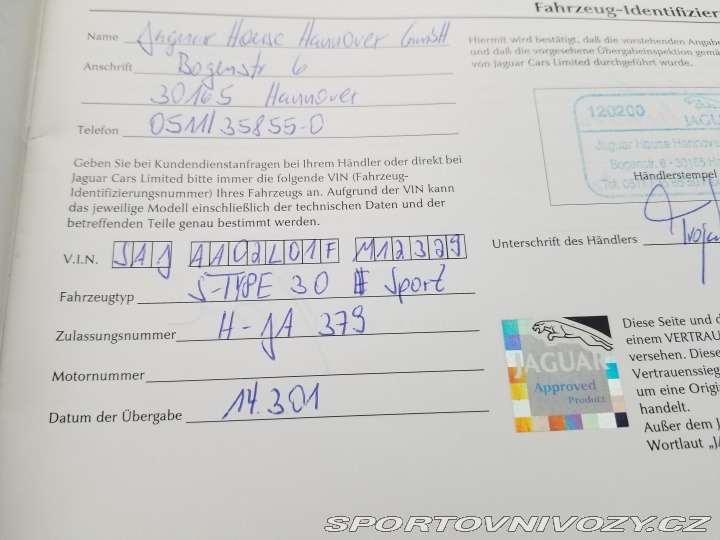 Fahrzeug-Identifizier
Name Jaguar House Hannover GmbH
Anschrift Bogenstr 6
30165 Hannover
Telefon 0511/35855-0
Hiermit wird bestätigt, daß die vorstehenden Angabe
und daß die vorgesehene Übergabeinspektion gemä
von Jaguar Cars Limited durchgeführt wurde.
120200
JAGU
Jaguar House Hannove
Bogenstr. 6 · 30165 Ha
Händlerstempel
Geben Sie bei Kundendienstanfragen bei Ihrem Händler oder direkt bei
Jaguar Cars Limited bitte immer die folgende VIN (Fahrzeug-
Identifizierungsnummer) Ihres Fahrzeugs an. Aufgrund der VIN kann
das jeweilige Modell einschließlich der technischen Daten und der
betreffenden Teile genau bestimmt werden.
V.I.N. SAJ AA02L01F M12329
Fahrzeugtyp S-TYPE 30 Sport
Zulassungsnummer H-JA 379
Motornummer
Datum der Übergabe 14.301
Unterschrift des Händlers
JAGUAR
Approved
Product
Diese Seite und d
einem VERTRAU
versehen. Diese
Vertrauenssieg
um eine Origi
handelt.
Außer dem J
Wortlaut „JA
SPORTOVNIVOZY.CZ